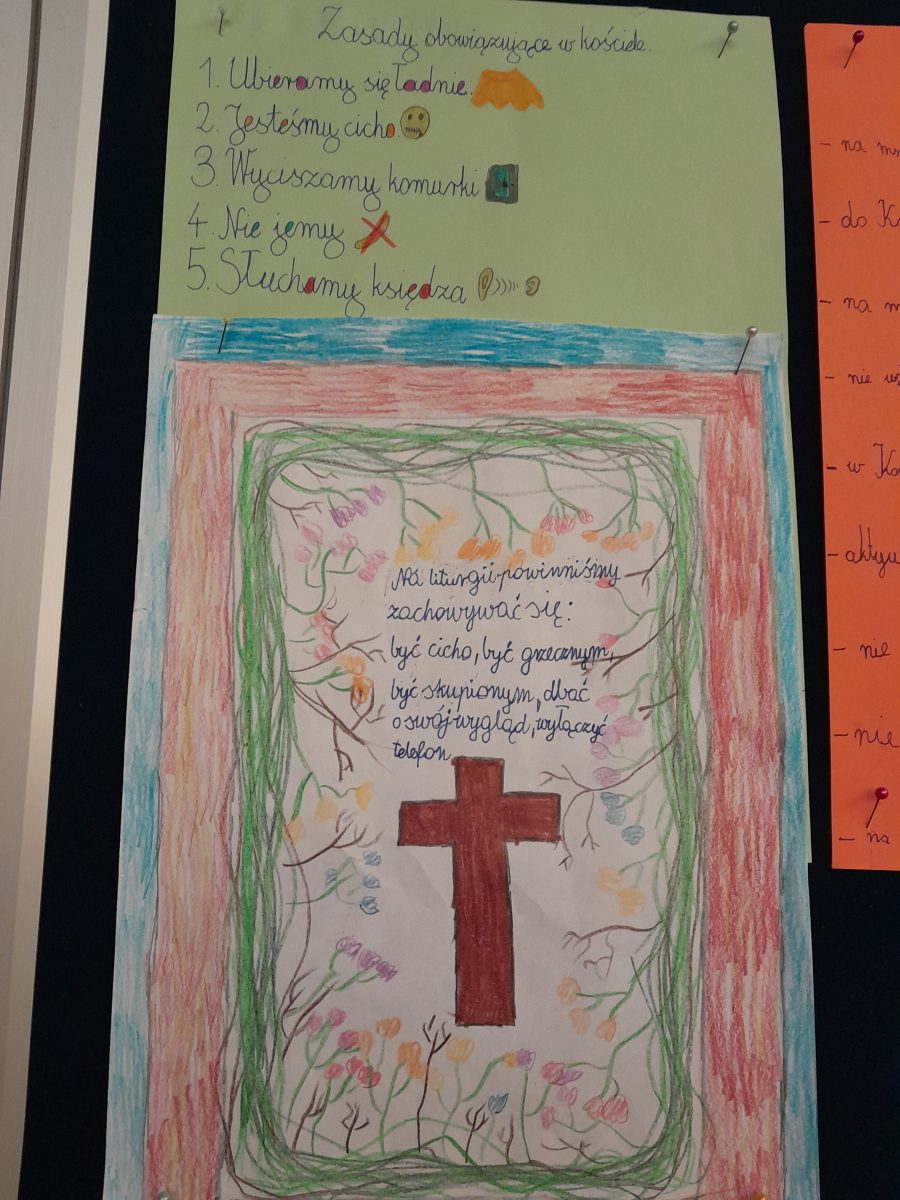 Zasady obowiązujące w kościele.
1. Ubieramy się ładnie.
2. Jesteśmy cicho.
3. Wyciszamy komurki
4. Nie jemy
5. Słuchamy księdza
Na liturgii powinniśmy
zachowywać się:
być cicho, być grzecznym,
być skupionym, dbać
o swój wygląd, wyłączyć
telefon
- na
- do
- na
- nie
- w
- nie
- nie
- na